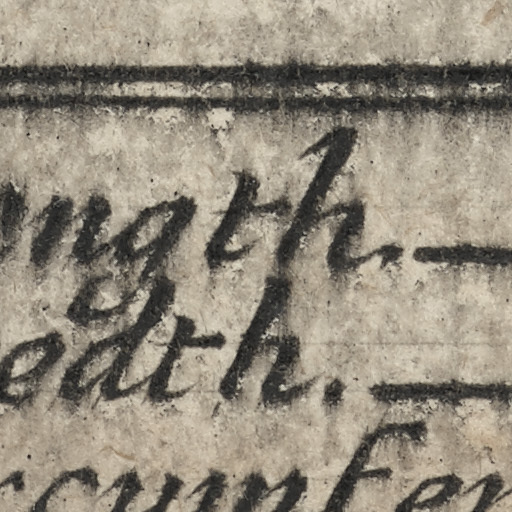 ngth. —
edth. —
rcumfer